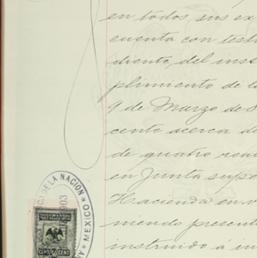 en todos, sus ex
cuenta con testi
diento, del inst
plimiento de l
9 de Marzo de 8
cento acerca d
de quatro rea
en Junta supe
Hacienda en v
mendo present
instruido á in
DE LA NACION
MEXICO